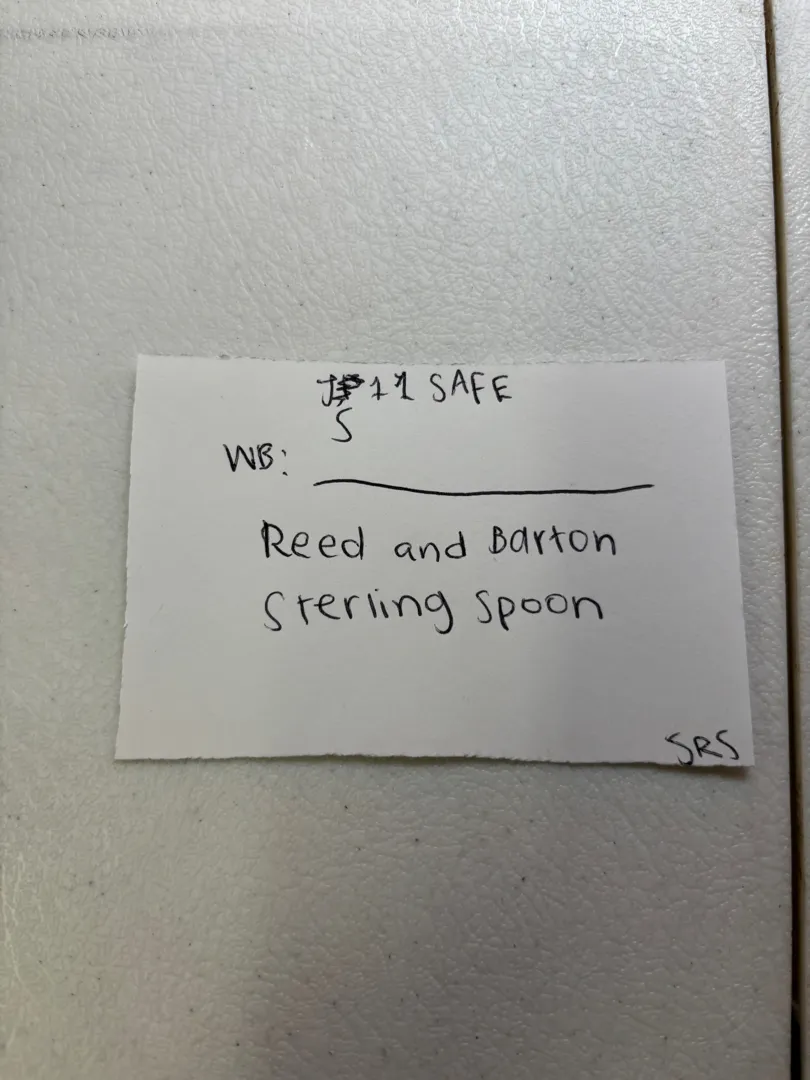 11 SAFE
S
WB:
Reed and Barton
Sterling Spoon
SRS